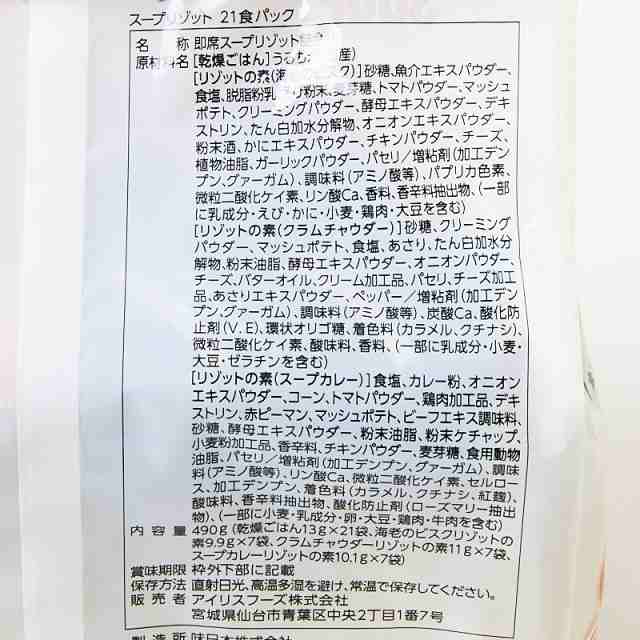 スープリゾット 21食パック
名 称 即席スープリゾット
原材料名 [乾燥ごはん]うるち 産)
[リゾットの素(海 ク)]砂糖、魚介エキスパウダー、
食塩、脱脂粉乳、 粉末、麦芽糖、トマトパウダー、マッシュ
ポテト、クリーミングパウダー、酵母エキスパウダー、デキ
ストリン、たん白加水分解物、オニオンエキスパウダー、
粉末酒、かにエキスパウダー、チキンパウダー、チーズ、
植物油脂、ガーリックパウダー、パセリ/増粘剤(加工デン
プン、グァーガム)、調味料(アミノ酸等)、パプリカ色素、
微粒二酸化ケイ素、リン酸Ca、香料、香辛料抽出物、(一部
に乳成分・えび・かに・小麦・鶏肉・大豆を含む)
[リゾットの素(クラムチャウダー)]砂糖、クリーミング
パウダー、マッシュポテト、食塩、あさり、たん白加水分
解物、粉末油脂、酵母エキスパウダー、オニオンパウダー、
チーズ、バターオイル、クリーム加工品、パセリ、チーズ加工
品、あさりエキスパウダー、ペッパー/増粘剤(加工デン
プン、グァーガム)、調味料(アミノ酸等)、炭酸Ca、酸化防
止剤(V.E)、環状オリゴ糖、着色料(カラメル、クチナシ)、
微粒二酸化ケイ素、酸味料、香料、(一部に乳成分・小麦・
大豆・ゼラチンを含む)
[リゾットの素(スープカレー)]食塩、カレー粉、オニオン
エキスパウダー、コーン、トマトパウダー、鶏肉加工品、デキ
ストリン、赤ピーマン、マッシュポテト、ビーフエキス調味料、
砂糖、酵母エキスパウダー、粉末油脂、粉末ケチャップ、
小麦粉加工品、香辛料、チキンパウダー、麦芽糖、食用動物
油脂、パセリ/増粘剤(加工デンプン、グァーガム)、調味
料(アミノ酸等)、リン酸Ca、微粒二酸化ケイ素、セルロー
ス、加工デンプン、着色料(カラメル、クチナシ、紅麹)、
酸味料、香辛料抽出物、酸化防止剤(ローズマリー抽出
物)、(一部に小麦・乳成分・卵・大豆・鶏肉・牛肉を含む)
内 容 量 490g(乾燥ごはん13g×21袋、海老のビスクリゾットの
素9.9g×7袋、クラムチャウダーリゾットの素11g×7袋、
スープカレーリゾットの素10.1g×7袋)
賞味期限 枠外下部に記載
保存方法 直射日光、高温多湿を避け、常温で保存してください。
販 売 者 アイリスフーズ株式会社
宮城県仙台市青葉区中央2丁目1番7号
製 造 所 味日本株式会社